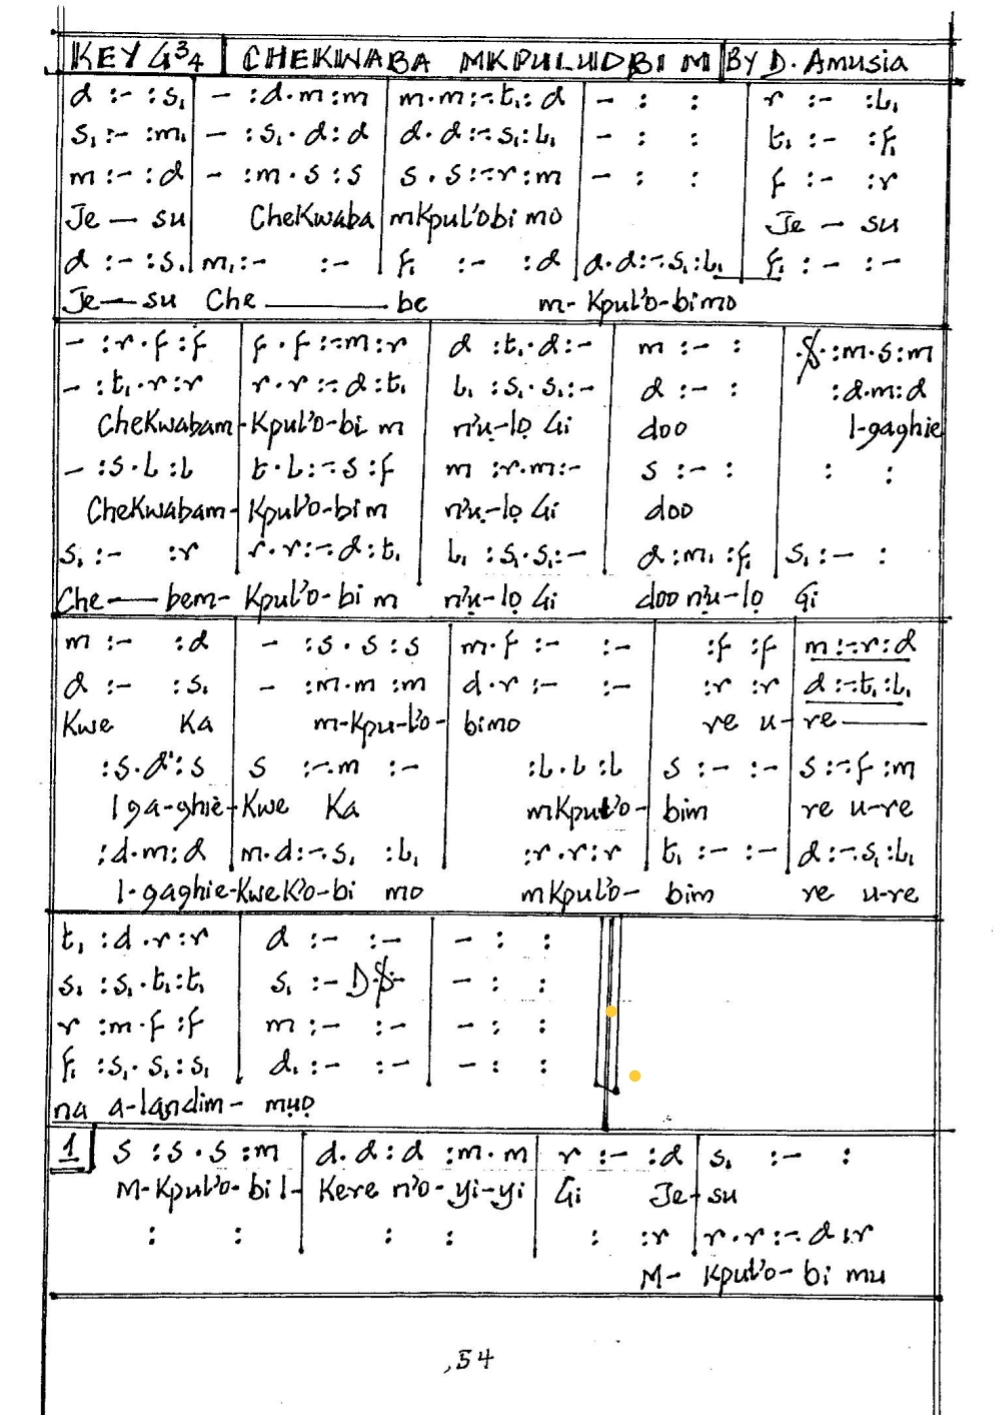 KEY G 3/4 | CHEKWABA MKPULUIDBI M | BY D. Amusia
d :- :s₁ | - :d.m:m | m.m:-.t₁:d | - : : | r :- :l₁
s₁ :- :m₁ | - :s₁.d:d | d.d:-.s₁:l₁ | - : : | t₁ :- :f₁
m :- :d | - :m.s:s | s.s:-.r:m | - : : | f :- :r
Je — su CheKwaba mKpul'obi mo Je — su
d :- :s₁ | m₁:- :- | f₁ :- :d | d.d:-.s₁:l₁ | f₁ :- :-
Je — su Che — be m- Kpul'o-bimo
- :r.f:f | f.f:-.m:r | d :t₁.d:- | m :- : | .S. :m.s:m
- :t₁.r:r | r.r:-.d:t₁ | l₁ :s₁.s₁:- | d :- : | :d.m:d
CheKwabam-Kpul'o-bi m n'ụ-lọ Gi doo I-gaghie
- :s.l:l | t.l:-.s:f | m :r.m:- | s :- : | : :
CheKwabam-Kpul'o-bim n'ụ-lọ Gi doo
s₁ :- :r | r.r:-.d:t₁ | l₁ :s₁.s₁:- | d:m₁:f₁ | s₁ :- :
Che — bem- Kpul'o-bi m n'ụ-lọ Gi doo n'ụ-lọ Gi
m :- :d | - :s.s:s | m.f :- :- | :f :f | m:-.r:d
d :- :s₁ | - :m.m:m | d.r :- :- | :r :r | d:-.t₁:l₁
Kwe Ka m-Kpu-l'o- bimo re u-re —
:s.d':s | s :-.m :- | :l.l:l | s :- :- | s:-.f:m
I ga-ghie-Kwe Ka mKpul'o- bim re u-re
:d.m:d | m.d:-.s₁ :l₁ | :r.r:r | t₁ :- :- | d:-.s₁:l₁
I-gaghie-KweK'o-bi mo mKpul'o- bim re u-re
t₁ :d.r:r | d :- :- | - : :
s₁ :s₁.t₁:t₁ | s₁ :- D.S.- | - : :
r :m.f:f | m :- :- | - : :
f₁ :s₁.s₁:s₁ | d₁ :- :- | - : :
na a-landim- mụọ
1 s :s.s:m | d.d:d :m.m | r :- :d | s₁ :- :
M-Kpul'o-bi I- Kere n'o-yi-yi Gi Je-su
: : | : : | : :r | r.r:-.d:r
M- Kpul'o-bi mu
,54